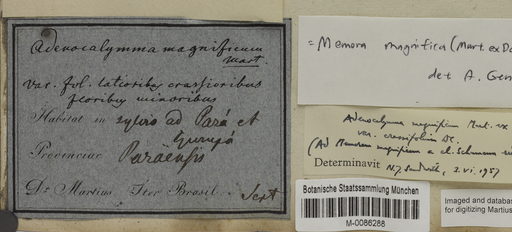 Adenocalymma magnificum
Mart.
var. fol. latioribus crassioribus
floribus minoribus
Habitat in sylvis ad Pará et
Gurupá
Provinciae Paraënsis
Dr Martius Iter Brasil. Sept
= Memora magnifica (Mart. ex D
det A. Gen
Adenocalymma magnificum Mart. ex
var. crassifolium DC.
(Ad Memoram magnificam a cl. Schumann
Determinavit N.Y. Sandwith, 2.vi.1937
Botanische Staatssammlung München
M-0086288
Imaged and databas
for digitizing Martius